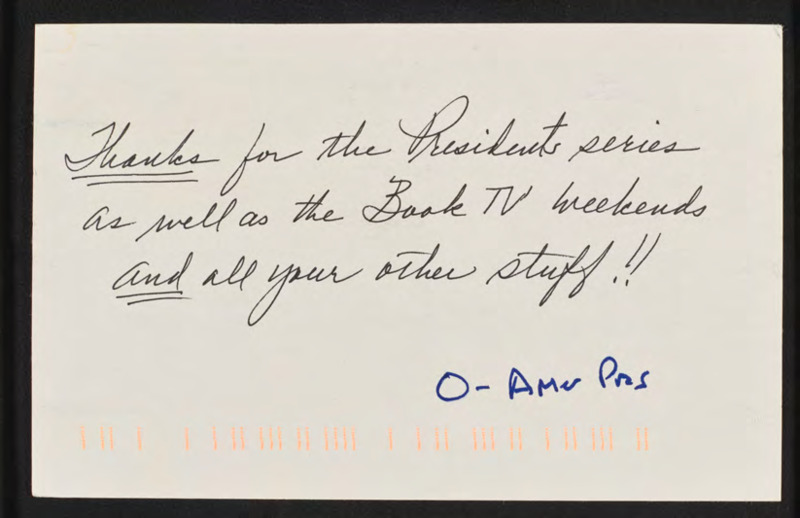 Thanks for the Presidents series
as well as the Book TV weekends
and all your other stuff!!
O- Amer Pres